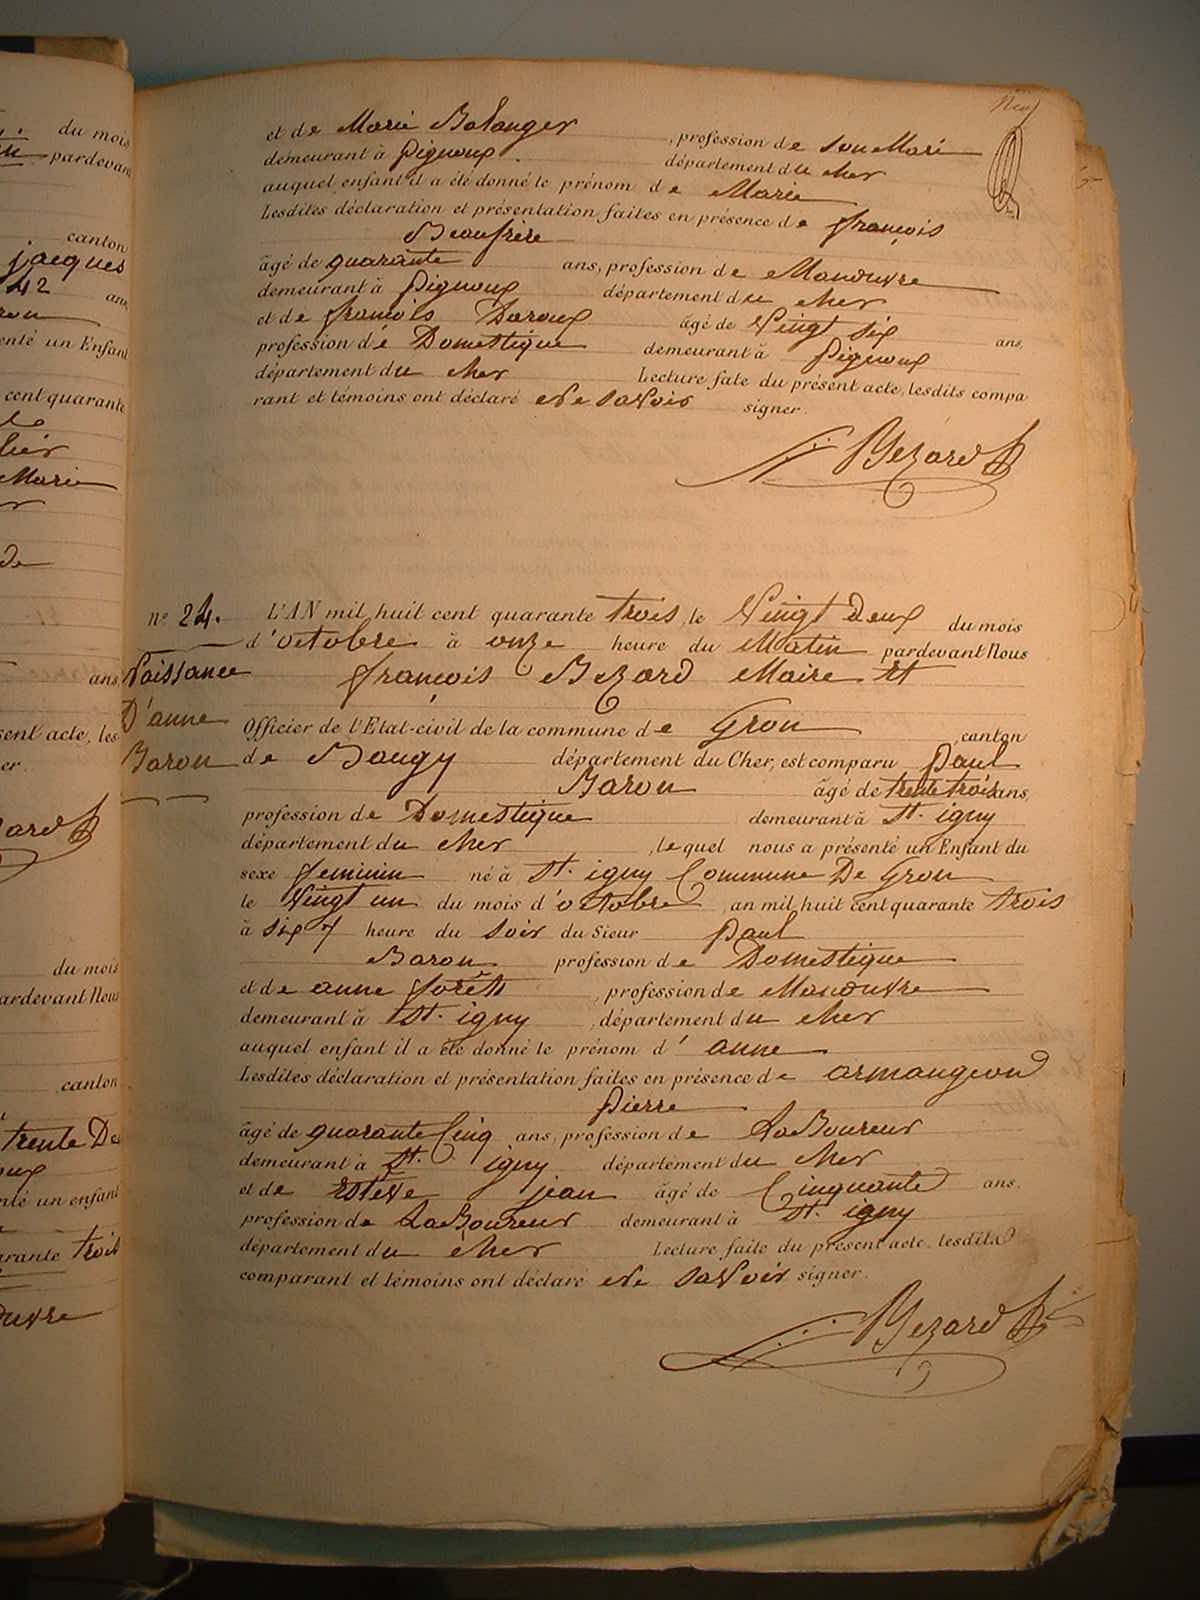 du mois
pardevant
canton
jacques
42 ans
enté un Enfant
cent quarante
lier
Marie
de
ans
sent acte, les
er.
du mois
ardevant Nous
canton
trente De
nté un enfant
arante trois
ouvre
Neuf
et de Marie Balanger, profession de son Mari
demeurant à Pignoux. département du cher
auquel enfant il a été donné le prénom de Marie
Lesdites déclaration et présentation faites en présence de françois
Beaufrère
âgé de quarante ans, profession de Manouvre
demeurant à Pignoux département du cher
et de francois Daroux âgé de Vingt six ans,
profession de Domestique demeurant à Pignoux
département du cher Lecture fate du présent acte, lesdits compa
rant et témoins ont déclaré Ne saVoir signer.
Bezard
n° 24. L'AN mil huit cent quarante trois, le Vingt deux du mois
d'octobre à onze heure du Matin pardevant Nous
Naissance françois Bezard Maire Et
D'anne Officier de l'Etat-civil de la commune de Gron canton
Baron de Baugy département du Cher, est comparu Paul
Baron âgé de trente trois ans,
profession de Domestique demeurant à St. igny
département du cher, lequel nous a présenté un Enfant du
sexe feminin né à St. igny Commune De Gron
le Vingt un du mois d'octobre, an mil huit cent quarante trois
à six heure du soir du Sieur Paul
Baron profession de Domestique
et de anne forêts, profession de Manouvre
demeurant à St. igny, département du cher
auquel enfant il a été donné le prénom d' anne
Lesdites déclaration et présentation faites en présence de armangeon
Pierre
âgé de quarante Cinq ans, profession de LaBoureur
demeurant à St. igny département du cher
et de Estève jean âgé de Cinquante ans.
profession de LaBoureur demeurant à St. igny
département du cher Lecture faite du présent acte, lesdits
comparant et témoins ont déclaré Ne saVoir signer.
Bezard